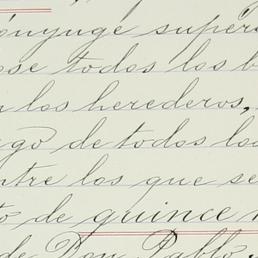 ónyuge supers
ose todos los b
n los herederos,
ago de todos los
ntre los que se
to de quince
de Don Pablo